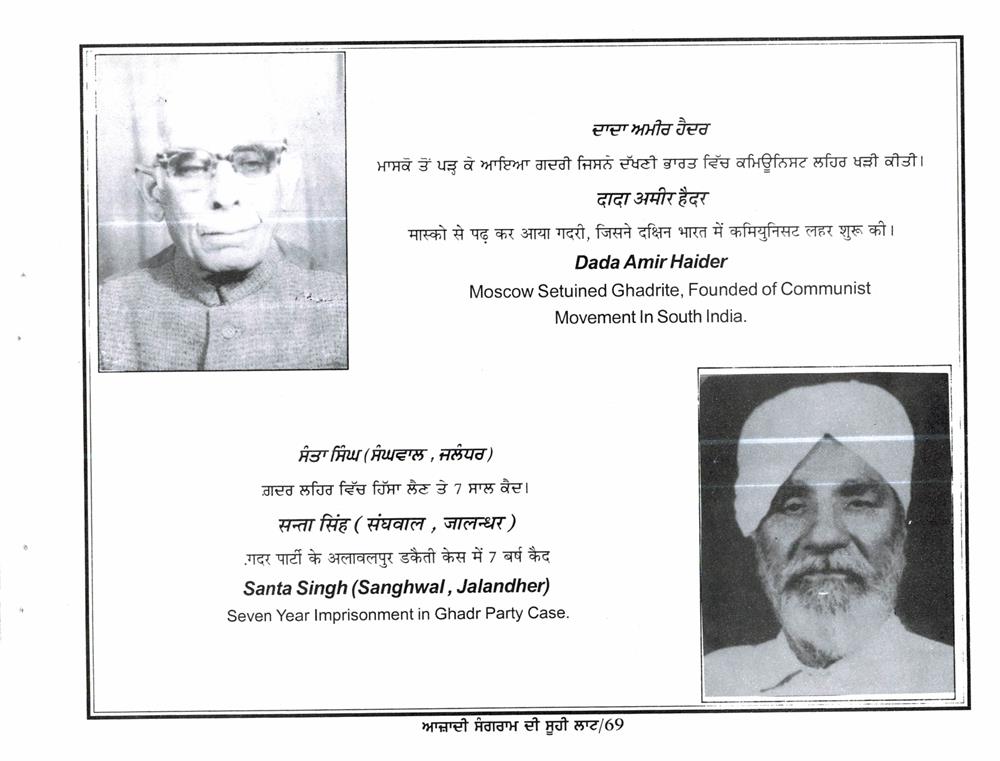 ਦਾਦਾ ਅਮੀਰ ਹੈਦਰ
ਮਾਸਕੋ ਤੋਂ ਪੜ੍ਹ ਕੇ ਆਇਆ ਗਦਰੀ ਜਿਸਨੇ ਦੱਖਣੀ ਭਾਰਤ ਵਿੱਚ ਕਮਿਊਨਿਸਟ ਲਹਿਰ ਖੜੀ ਕੀਤੀ।
दादा अमीर हैदर
मास्को से पढ़ कर आया गदरी, जिसने दक्षिन भारत में कमियुनिसट लहर शुरू की।
Dada Amir Haider
Moscow Setuined Ghadrite, Founded of Communist
Movement In South India.
ਸੰਤਾ ਸਿੰਘ (ਸੰਘਵਾਲ , ਜਲੰਧਰ)
ਗ਼ਦਰ ਲਹਿਰ ਵਿੱਚ ਹਿੱਸਾ ਲੈਣ ਤੇ 7 ਸਾਲ ਕੈਦ।
सन्ता सिंह ( संघवाल , जालन्धर )
.गदर पार्टी के अलावलपुर डकैती केस में 7 बर्ष कैद
Santa Singh (Sanghwal , Jalandher)
Seven Year Imprisonment in Ghadr Party Case.
ਆਜ਼ਾਦੀ ਸੰਗਰਾਮ ਦੀ ਸੂਹੀ ਲਾਟ/69